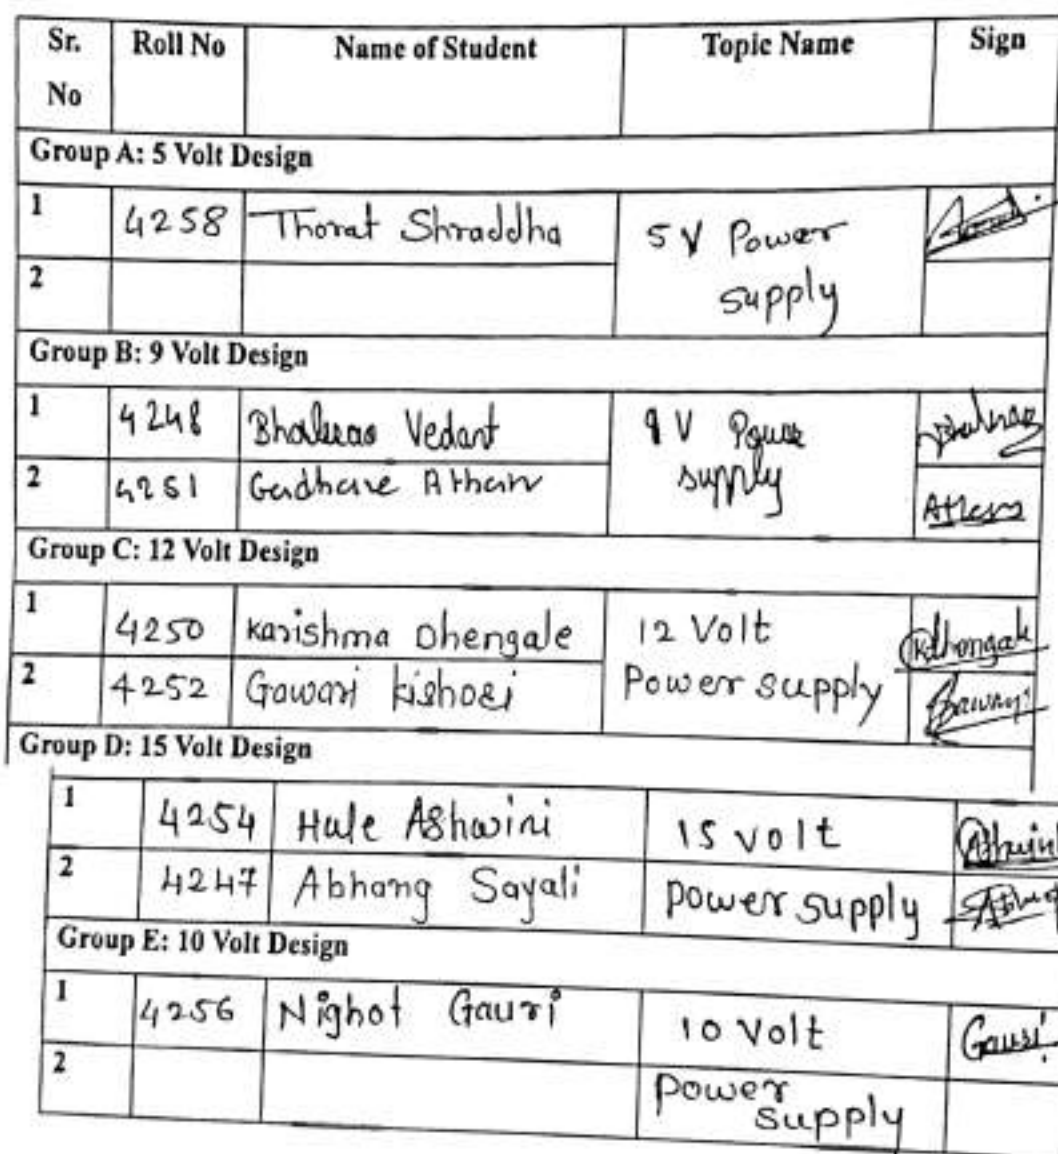 Sr. No Roll No Name of Student Topic Name Sign
Group A: 5 Volt Design
1 4258 Thorat Shraddha 5 V Power supply
2
Group B: 9 Volt Design
1 4248 Bhalerao Vedant 9 V Power supply
2 4251 Gadhave Atharv
Group C: 12 Volt Design
1 4250 Karishma Dhengale 12 Volt Power supply
2 4252 Gawari Kishori
Group D: 15 Volt Design
1 4254 Hule Ashwini 15 volt power supply
2 4247 Abhang Sayali
Group E: 10 Volt Design
1 4256 Nighot Gauri 10 Volt power supply Gauri
2